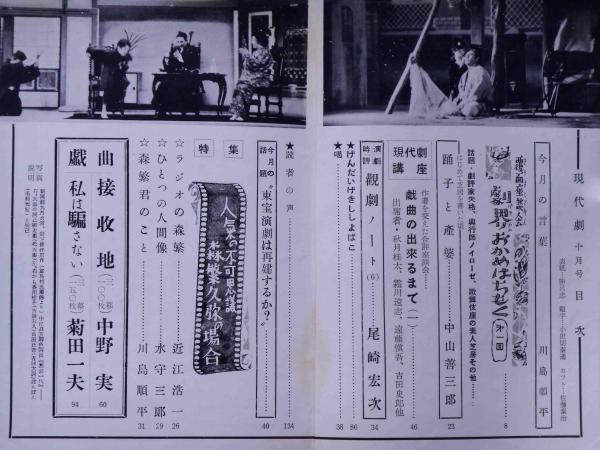 現代劇 十月号 目次
今月の言葉 川島順平
劇界おかめはちもく 第一回
話題・劇評家失格、興行話ノイローゼ、歌舞伎座の素人芝居その他…… 8
踊子と産婆 中山善三郎 23
現代劇講座
作者を交えた合評座談会……
戯曲の出來るまで(一) 46
出席者・秋月桂太、霜川遠志、遠藤慎吾、吉田史郎他
演劇時評
觀劇ノート(6) 尾崎宏次 34
★げんだいげきししょばこ 86
★喝 38
★読者の声 134
今月の話題
“東宝演劇は再建するか?” 40
特集
人気の不可思議
森繁久彌の場合
☆ラジオの森繁 近江浩一 26
☆ひとつの人間像 水守三郎 29
☆森繁君のこと 川島順平 31
戯曲
接收地(三幕一〇〇枚) 中野実 60
私は騙さない(三幕一五〇枚) 菊田一夫 94
写真説明